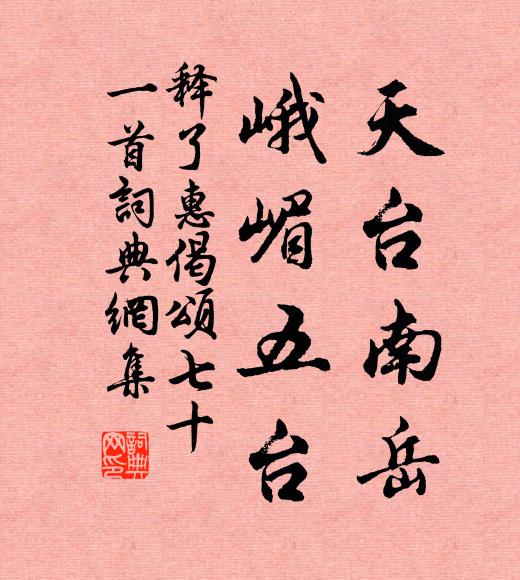 天台南岳
峨嵋五台
释了惠偈頌七十
一首詞典網集
詞典网印